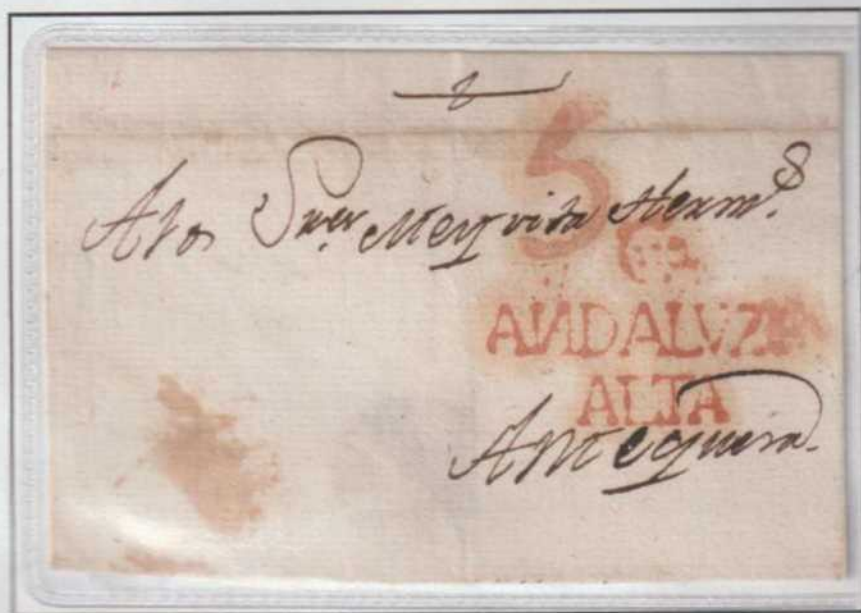 5
A los S.res Mezquita Herm.s
ANDALVZIA
ALTA
Antequera.